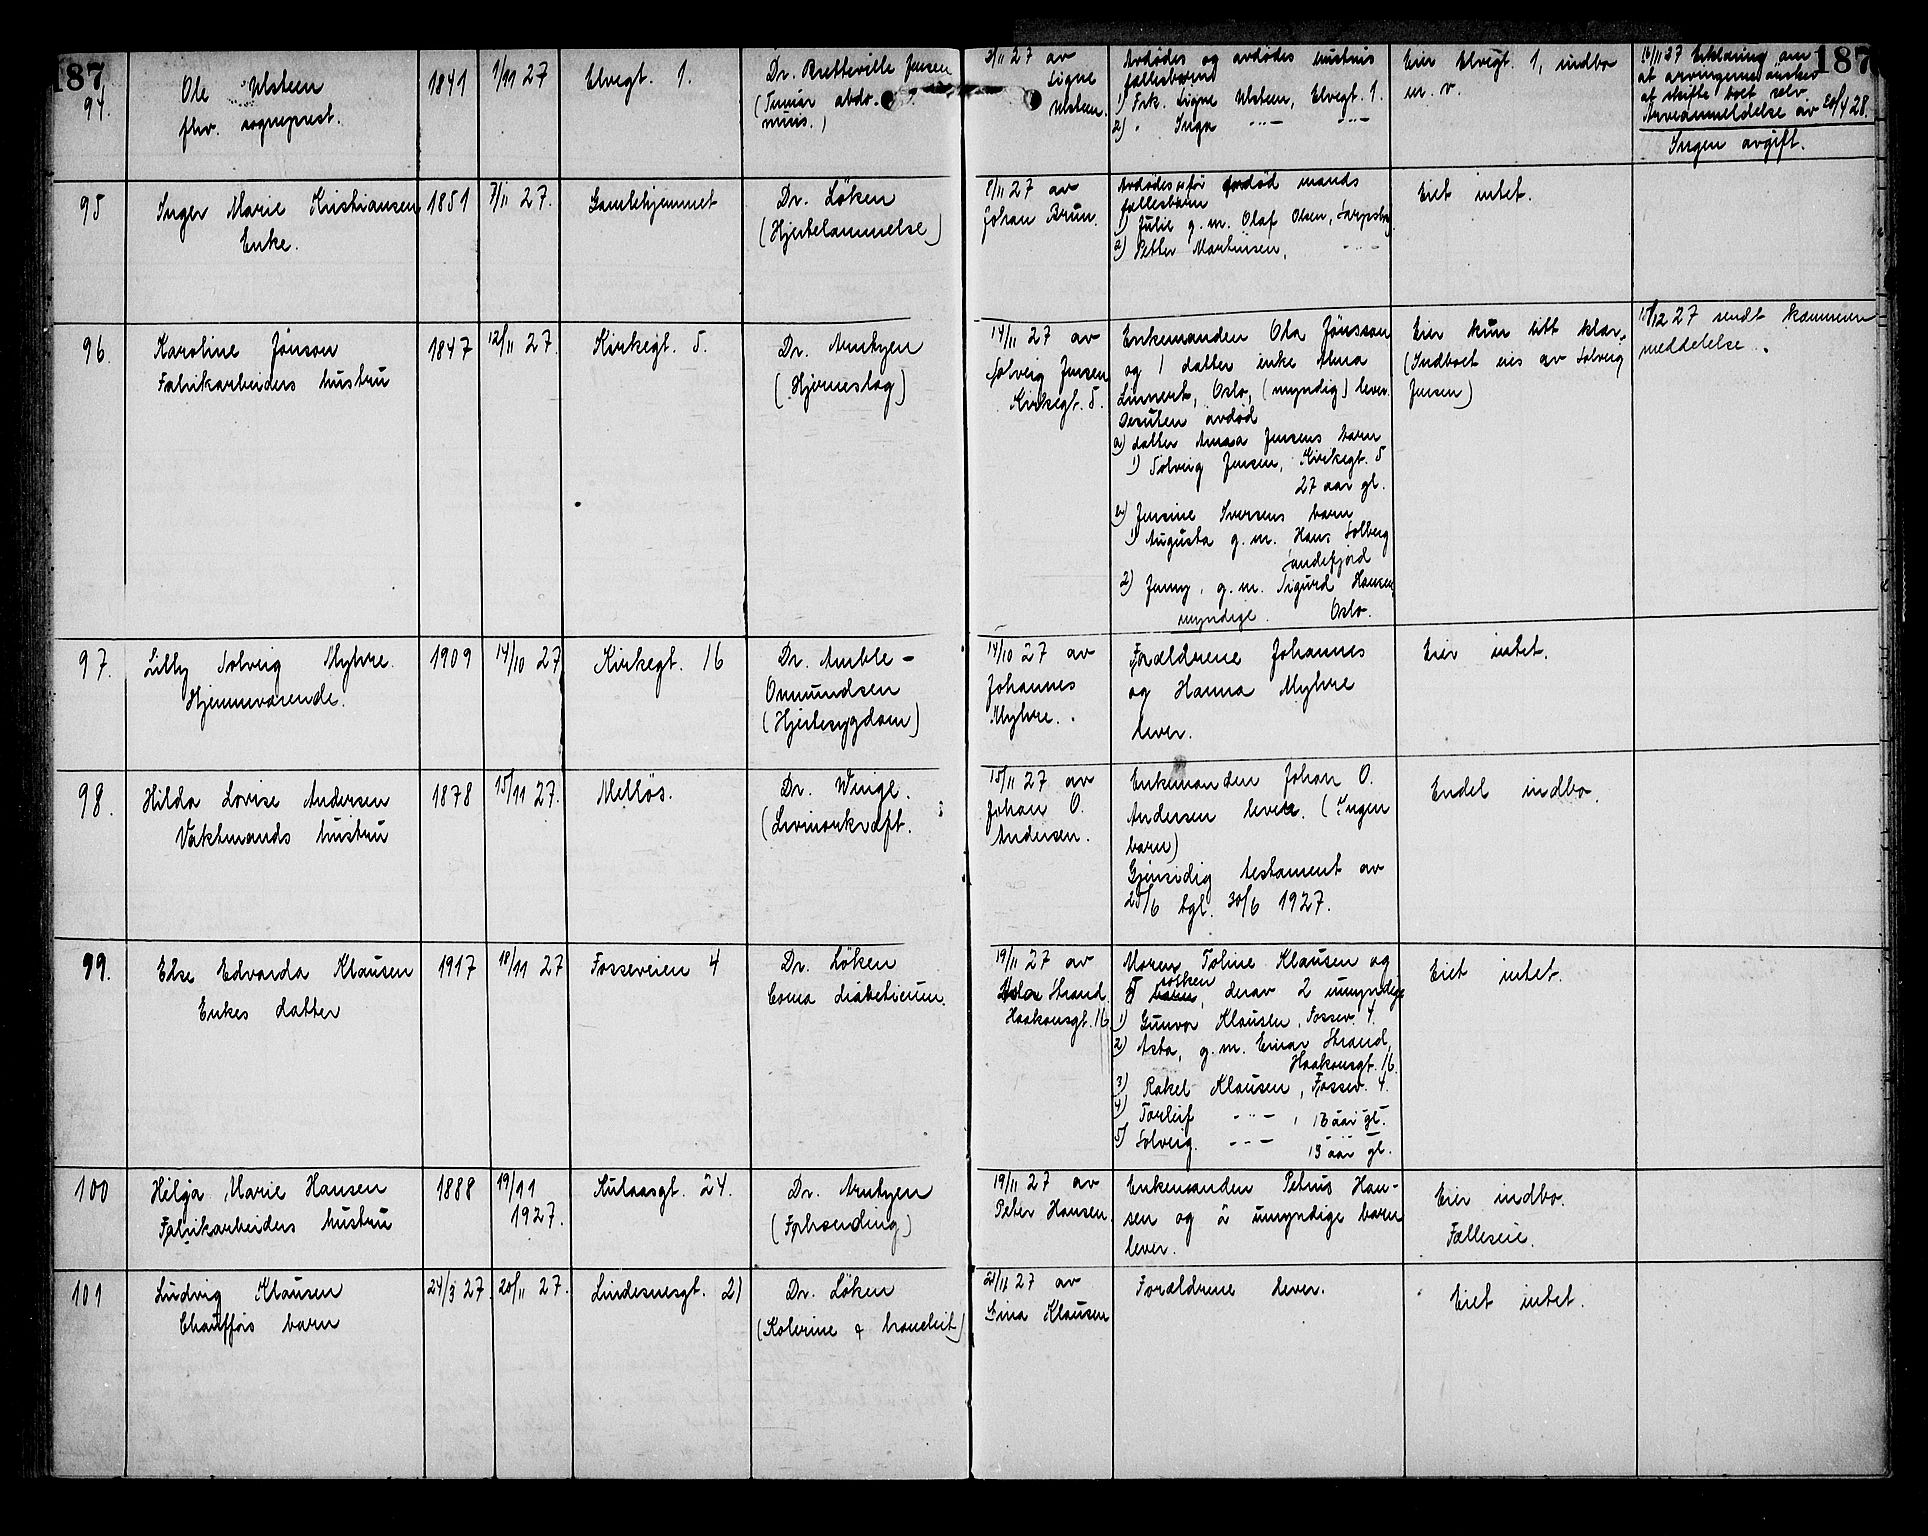 187
187
94.
Ole Ulsteen
fhv. sogneprest.
1841
1/11 27
Elvegt. 1.
Dr. Bretteville Jensen
(Tumor abdo-
minis.)
3/11 27 av
Signe
Ulsteen.
Avdødes og avdødes hustrus
fællesbarn
1) Frk. Signe Ulsteen, Elvegt. 1.
2) " Inga -"- -"-
Eier Elvegt. 1, indbo
m. v.
Erklæring om
at arvingerne ønsker
at skifte boet selv.
Arveanmeldelse av 20/4 28.
Ingen avgift.
95
Inger Marie Kristiansen
Enke.
1851
7/11 27.
Gamlehjemmet
Dr. Löken
(Hjertelammelse)
8/11 27 av
Johan Brun.
Avdødes før død mands
fællesbarn
1) Julie g. m. Olaf Olsen, Sarpsbg
2) Petter Martinsen, -"-
Eiet intet.
96.
Karoline Jönson
Fabrikarbeiders hustru
1847
12/11 27.
Kirkegt. 5.
Dr. Arntzen
(Hjerneslag)
14/11 27 av
Solveig Jensen
Kirkegt. 5.
Enkemanden Ola Jönsson
og 1 datter enke Alma
Linnert, Oslo, (myndig) lever.
Desuten avdød
a) datter Anna Jensens barn
1) Solveig Jensen, Kirkegt. 5
27 aar gl.
b) Jensine Iversens barn
1) Augusta g. m. Hans Solberg
Sandefjord
2) Jenny, g. m. Sigurd Hansen
myndige. Oslo.
Eier kun litt klær.
(Indboet eies av Solveig
Jensen)
12 27 sendt kæmneren
meddelelse.
97.
Lilly Solveig Myhre.
Hjemmeværende.
1909
14/10 27
Kirkegt. 16
Dr. Amble-
Ommundsen
(Hjertesygdom)
14/10 27 av
Johannes
Myhre.
Forældrene Johannes
og Hanna Myhre
lever.
Eier intet.
98.
Hilda Lovise Andersen
Vaktmands hustru
1878
15/11 27.
Melløs.
Dr. Winge.
(Livmorkræft.
15/11 27 av
Johan O.
Andersen.
Enkemanden Johan O.
Andersen lever. (Ingen
barn)
Gjensidig testament av
25/6 tgl. 30/6 1927.
Endel indbo.
99.
Else Edvarda Klausen
Enkes datter
1917
18/11 27
Fosseveien 4
Dr. Löken
Coma diabeticum.
19/11 27 av
Strand.
Haakonsgt. 16
Moren Toline Klausen og
søsken
5 barn, derav 2 umyndige
1) Gunvor Klausen, Fossev. 4.
2) Asta, g. m. Einar Strand,
Haakonsgt. 16.
3) Rakel Klausen, Fossev. 4.
4) Torleif -"- , 16 aar gl.
5) Solveig. -"- 13 aar gl.
Eiet intet.
100
Helga Marie Hansen
Fabrikarbeiders hustru
1888
19/11
1927.
Kulaasgt. 24.
Dr. Arntzen
(Forbrænding)
19/11 27 av
Peter Hansen.
Enkemanden Petrus Han-
sen og 2 umyndige barn
lever.
Eier indbo.
Fælleseie.
101
Ludvig Klausen
Chaufførs barn
24/3 27.
20/11 27.
Lindesnesgt. 21
Dr. Löken
(Kolerine & bronchit)
21/11 27 av
Lina Klausen
Forældrene lever.
Eiet intet.